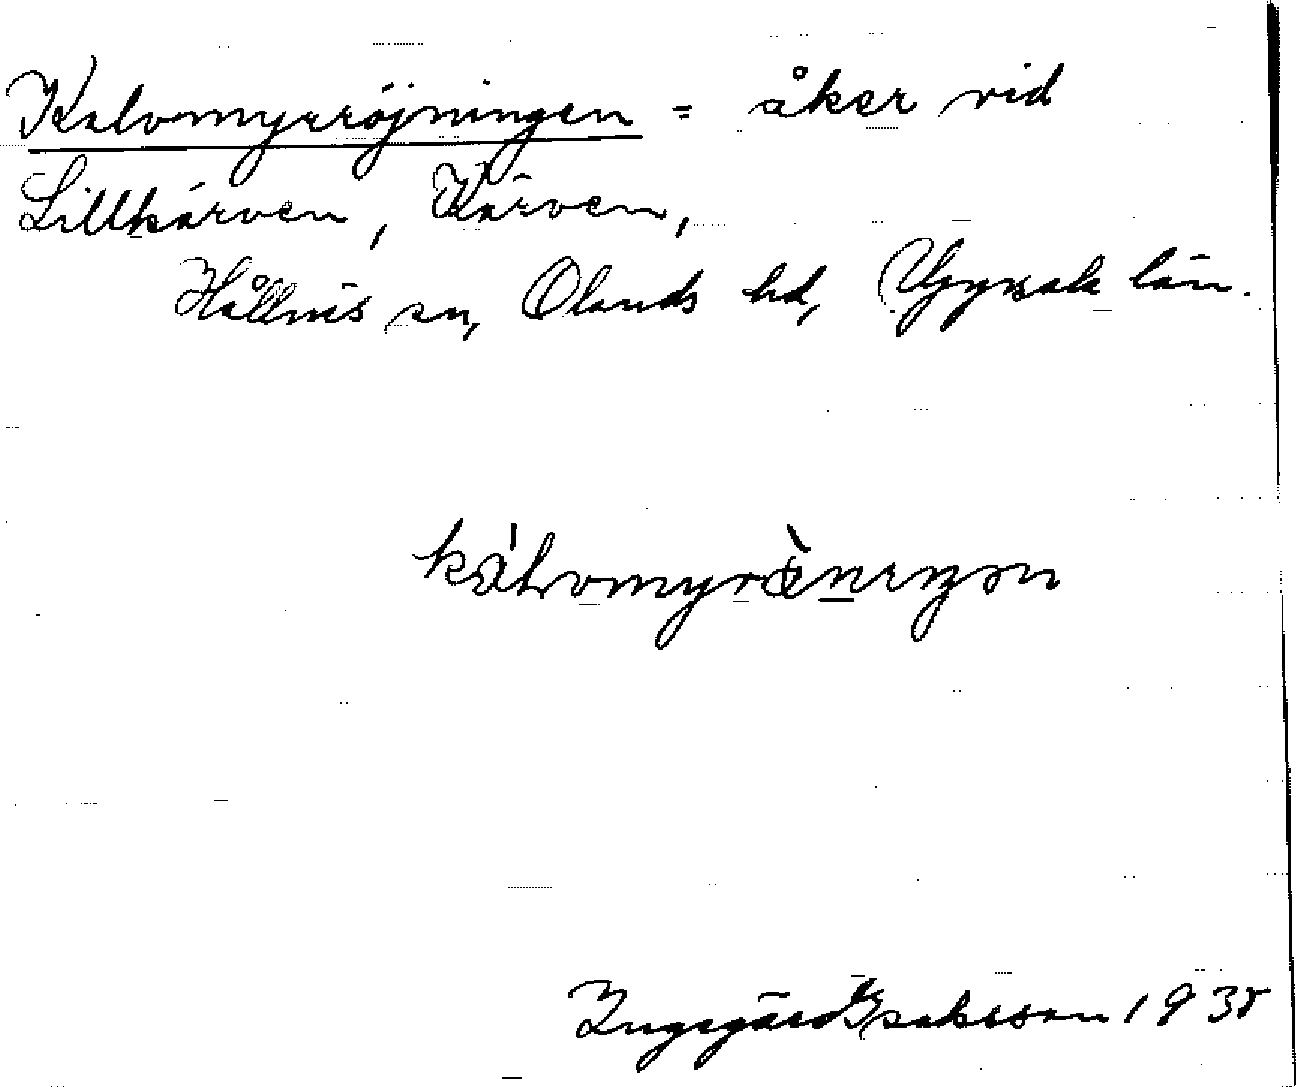 Kalvmyrröjningen = åker vid
Lillkärven, Kärven,
Hållnäs sn, Olands hd, Uppsala län.
Ingegärd Isaksson 193